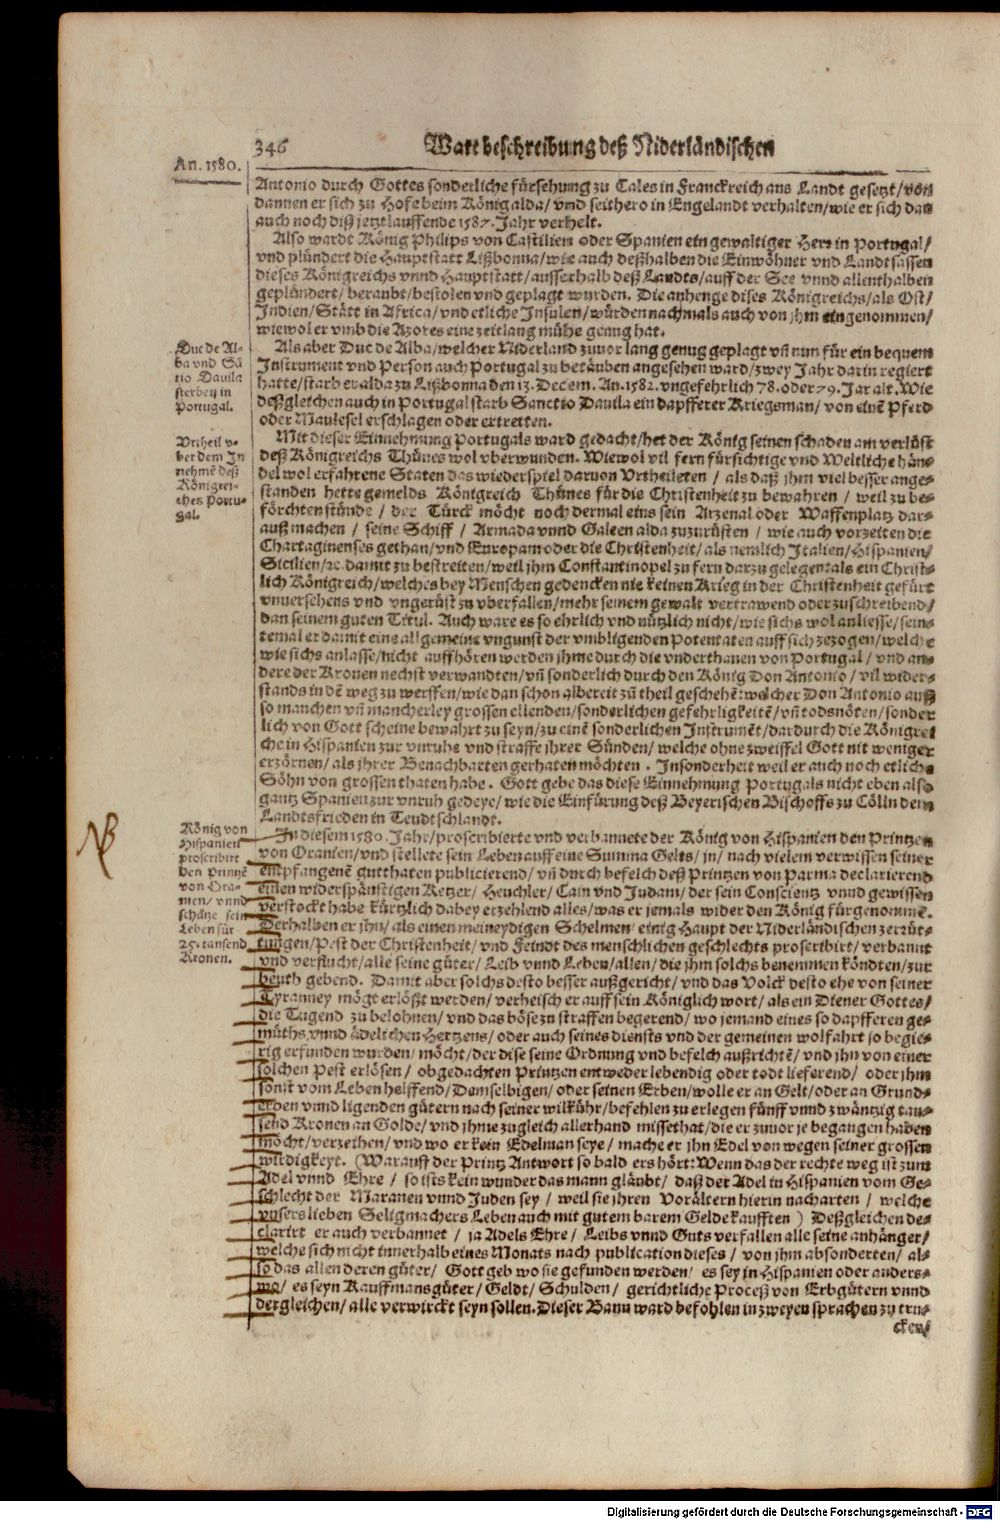 346
Ware beschreibung deß Niderländischen
An. 1580.
Antonio durch Gottes sonderliche fürsehung zu Cales in Franckreich ans Landt gesetzt/von
dannen er sich zu Hofe beim König alda/ vnd seithero in Engelandt verhalten/wie er sich dan
auch noch diß jetztlauffende 1587. Jahr verhelt.
Also wardt König Philips von Castilien oder Spanien ein gewaltiger Herr in Portugal/
vnd plündert die Hauptstatt Lißbonna/wie auch deßhalben die Einwöhner vnd Landtsassen
dieses Königreichs vnnd Hauptstatt/ausserhalb deß Landts/auff der See vnnd allenthalben
geplündert/ beraubt/bestolen vnd geplagt wurden. Die anhenge dises Königreichs/als Ost/
Indien/Stätt in Africa/vnd etliche Insulen/würden nachmals auch von jhm eingenommen/
wiewol er vmb die Azores eine zeitlang mühe genug hat.
Duc de Al-
ba vnd Sā
tio Dauila
sterben in
Portugal.
Als aber Duc de Alba/welcher Niderland zuuor lang genug geplagt vñ nun für ein bequem
Instrument vnd Person auch Portugal zu betäuben angesehen ward/zwey Jahr darin regiert
hatte/starb er alda zu Lißbonna den 13. Decem. An. 1582. vngefehrlich 78. oder 79. Jar alt. Wie
deßgleichen auch in Portugal starb Sanctio Dauila ein dapfferer Kriegsman/ von einē Pferd
oder Maulesel erschlagen oder ertretten.
Vrtheil v-
ber dem In
nehmē deß
Königrei-
ches Portu-
gal.
Mit dieser Einnehmung Portugals ward gedacht/het der König seinen schaden am verlüst
deß Königreichs Thünes wol vberwunden. Wiewol vil fern fürsichtige vnd Weltliche hän-
del wol erfahrene Staten das wiederspiel daruon Vrtheileten / als daß jhm viel besser ange-
standen hette gemelds Königreich Thünes für die Christenheit zu bewahren / weil zu be-
förchten stünde / der Türck möcht noch dermal eins sein Arzenal oder Waffenplatz dar-
auß machen / seine Schiff / Armada vnnd Galeen alda zuzurüsten / wie auch vorzeiten die
Chartaginenses gethan/vnd Europam oder die Christenheit/als nemlich Italien/Hispanien/
Sicilien/ꝛc. damit zu bestreiten/weil jhm Constantinopel zu fern darzu gelegen: als ein Christ-
lich Königreich/welches bey Menschen gedencken nie keinen Krieg in der Christenheit gefürt
vnuersehens vnd vngerüst zu vberfallen/mehr seinem gewalt vertrawend oder zuschreibend/
dan seinem guten Titul. Auch ware es so ehrlich vnd nützlich nicht/wie sichs wol anliesse/sein-
temal er damit eins allgemeine vngunst der vmbligenden Potentaten auff sich zezogen/welche
wie sichs anlasse/nicht auffhören werden jhme durch die vnderthanen von Portugal / vnd an-
dere der Kronen nechst verwandten/vñ sonderlich durch den König Don Antonio / vil wider-
stands in dē weg zu werffen/wie dan schon albereit zū theil geschehē: welcher Don Antonio auß
so manchen vñ mancherley grossen ellenden/sonderlichen gefehrligkeitē/vñ todsnöten/sonder
lich von Gott scheine bewahrt zu seyn/zu einē sonderlichen Instrumēt/dardurch die Königrei
che in Hispanien zur vnruhe vnd straffe jhrer Sünden/ welche ohne zweiffel Gott nit weniger
erzörnen/als jhrer Benachbarten gerhaten möchten . Insonderheit weil er auch noch etliche
Söhn von grossen thaten habe. Gott gebe das diese Einnehmung Portugals nicht eben also
gantz Spanien zur vnruh gedeye/ wie die Einfürung deß Beyerischen Bischoffs zu Cölln dem
Landtsfrieden in Teudtschlandt.
NB
König von
Hispanien
proscribirt
den Printzē
von Ora-
nien/ vnnd
schätze sein
Leben für
25. tausend
Kronen.
In diesem 1580. Jahr/proscribierte vnd verbannete der König von Hispanien den Printzen
von Oranien/vnd stellete sein Leben auff eine Summa Gelts/ in/ nach vielem verwissen seiner
empfangenē gutthaten publicierend/ vñ durch befelch deß Printzen von Parma declarierend
einen widerspänstigen Ketzer/ Heuchler/ Cain vnd Judam/ der sein Conscientz vnnd gewissen
verstockt habe kürtzlich dabey erzehlend alles/ was er jemals wider den König fürgenommē.
Derhalben er jhn/ als einen meineydigen Schelmen/ einig Haupt der Niderländischen zerrüt-
tungen/Pest der Christenheit/ vnd Feindt des menschlichen geschlechts proscribirt/ verbannt
vnd verflucht/alle seine güter/ Leib vnnd Leben/allen/ die jhm solchs benemmen köndten/zur
beuth gebend. Damit aber solchs desto besser außgericht/ vnd das Volck desto ehe von seiner
Tyranney mögt erlößt werden/ verheisch er auff sein Königlich wort/ als ein Diener Gottes/
die Tugend zu belohnen/ vnd das böse zu straffen begerend/ wo jemand eines so dapfferen ge-
müths vnnd ädelichen Hertzens/ oder auch seines diensts vnd der gemeinen wolfahrt so begie-
rig erfunden wurden/ möcht/ der dise seine Ordnung vnd befelch außrichtē/ vnd jhn von einer
solchen Pest erlösen/ obgedachten Printzen entweder lebendig oder todt lieferend/ oder jhm
sonst vom Leben helffend/Demselbigen/ oder seinen Erben/wolle er an Gelt/oder an Grund-
erben vnnd ligenden gütern nach seiner wilkühr/befehlen zu erlegen fünff vnnd zwäntzig tau-
send Kronen an Golde/ vnd jhme zugleich allerhand missethat/die er zuuor je begangen haben
möcht/verzeihen/ vnd wo er kein Edelman seye/ mache er jhn Edel von wegen seiner grossen
wirdigkeyt. (Warauff der Printz Antwort so bald ers hört: Wenn das der rechte weg ist zum
Adel vnnd Ehre / so ists kein wunder das mann gläubt/ daß der Adel in Hispanien vom Ge-
schlecht der Maranen vnnd Juden sey / weil sie jhren Vorältern hierin nacharten / welche
vnsers lieben Seligmachers Leben auch mit gutem barem Gelde kaufften) Deßgleichen de-
clarirt er auch verbannet / ja Adels Ehre/ Leibs vnnd Guts verfallen alle seine anhänger/
welche sich nicht innerhalb eines Monats nach publication dieses / von jhm absonderten/ al-
so das allen deren güter/ Gott geb wo sie gefunden werden/ es sey in Hispanien oder anders-
wo/ es seyn Kauffmansgüter/ Geldt/ Schulden/ gerichtliche Proceß von Erbgütern vnnd
dergleichen/ alle verwirckt seyn sollen. Dieser Bann ward befohlen in zweyen sprachen zu tru-
cken/
Digitalisierung gefördert durch die Deutsche Forschungsgemeinschaft - DFG